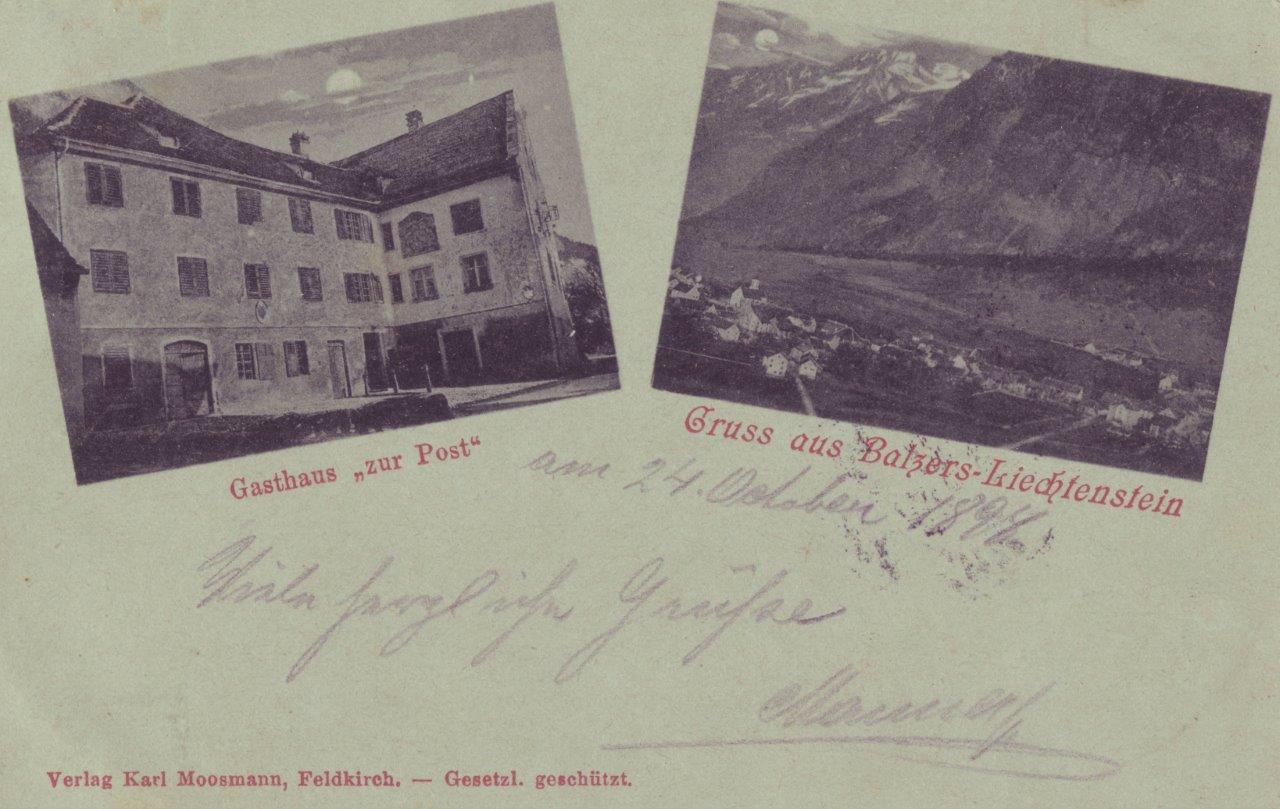 Gasthaus „zur Post“
Gruss aus Balzers-Liechtenstein
am 24. October
Viele herzliche Grüsse
Verlag Karl Moosmann, Feldkirch. — Gesetzl. geschützt.